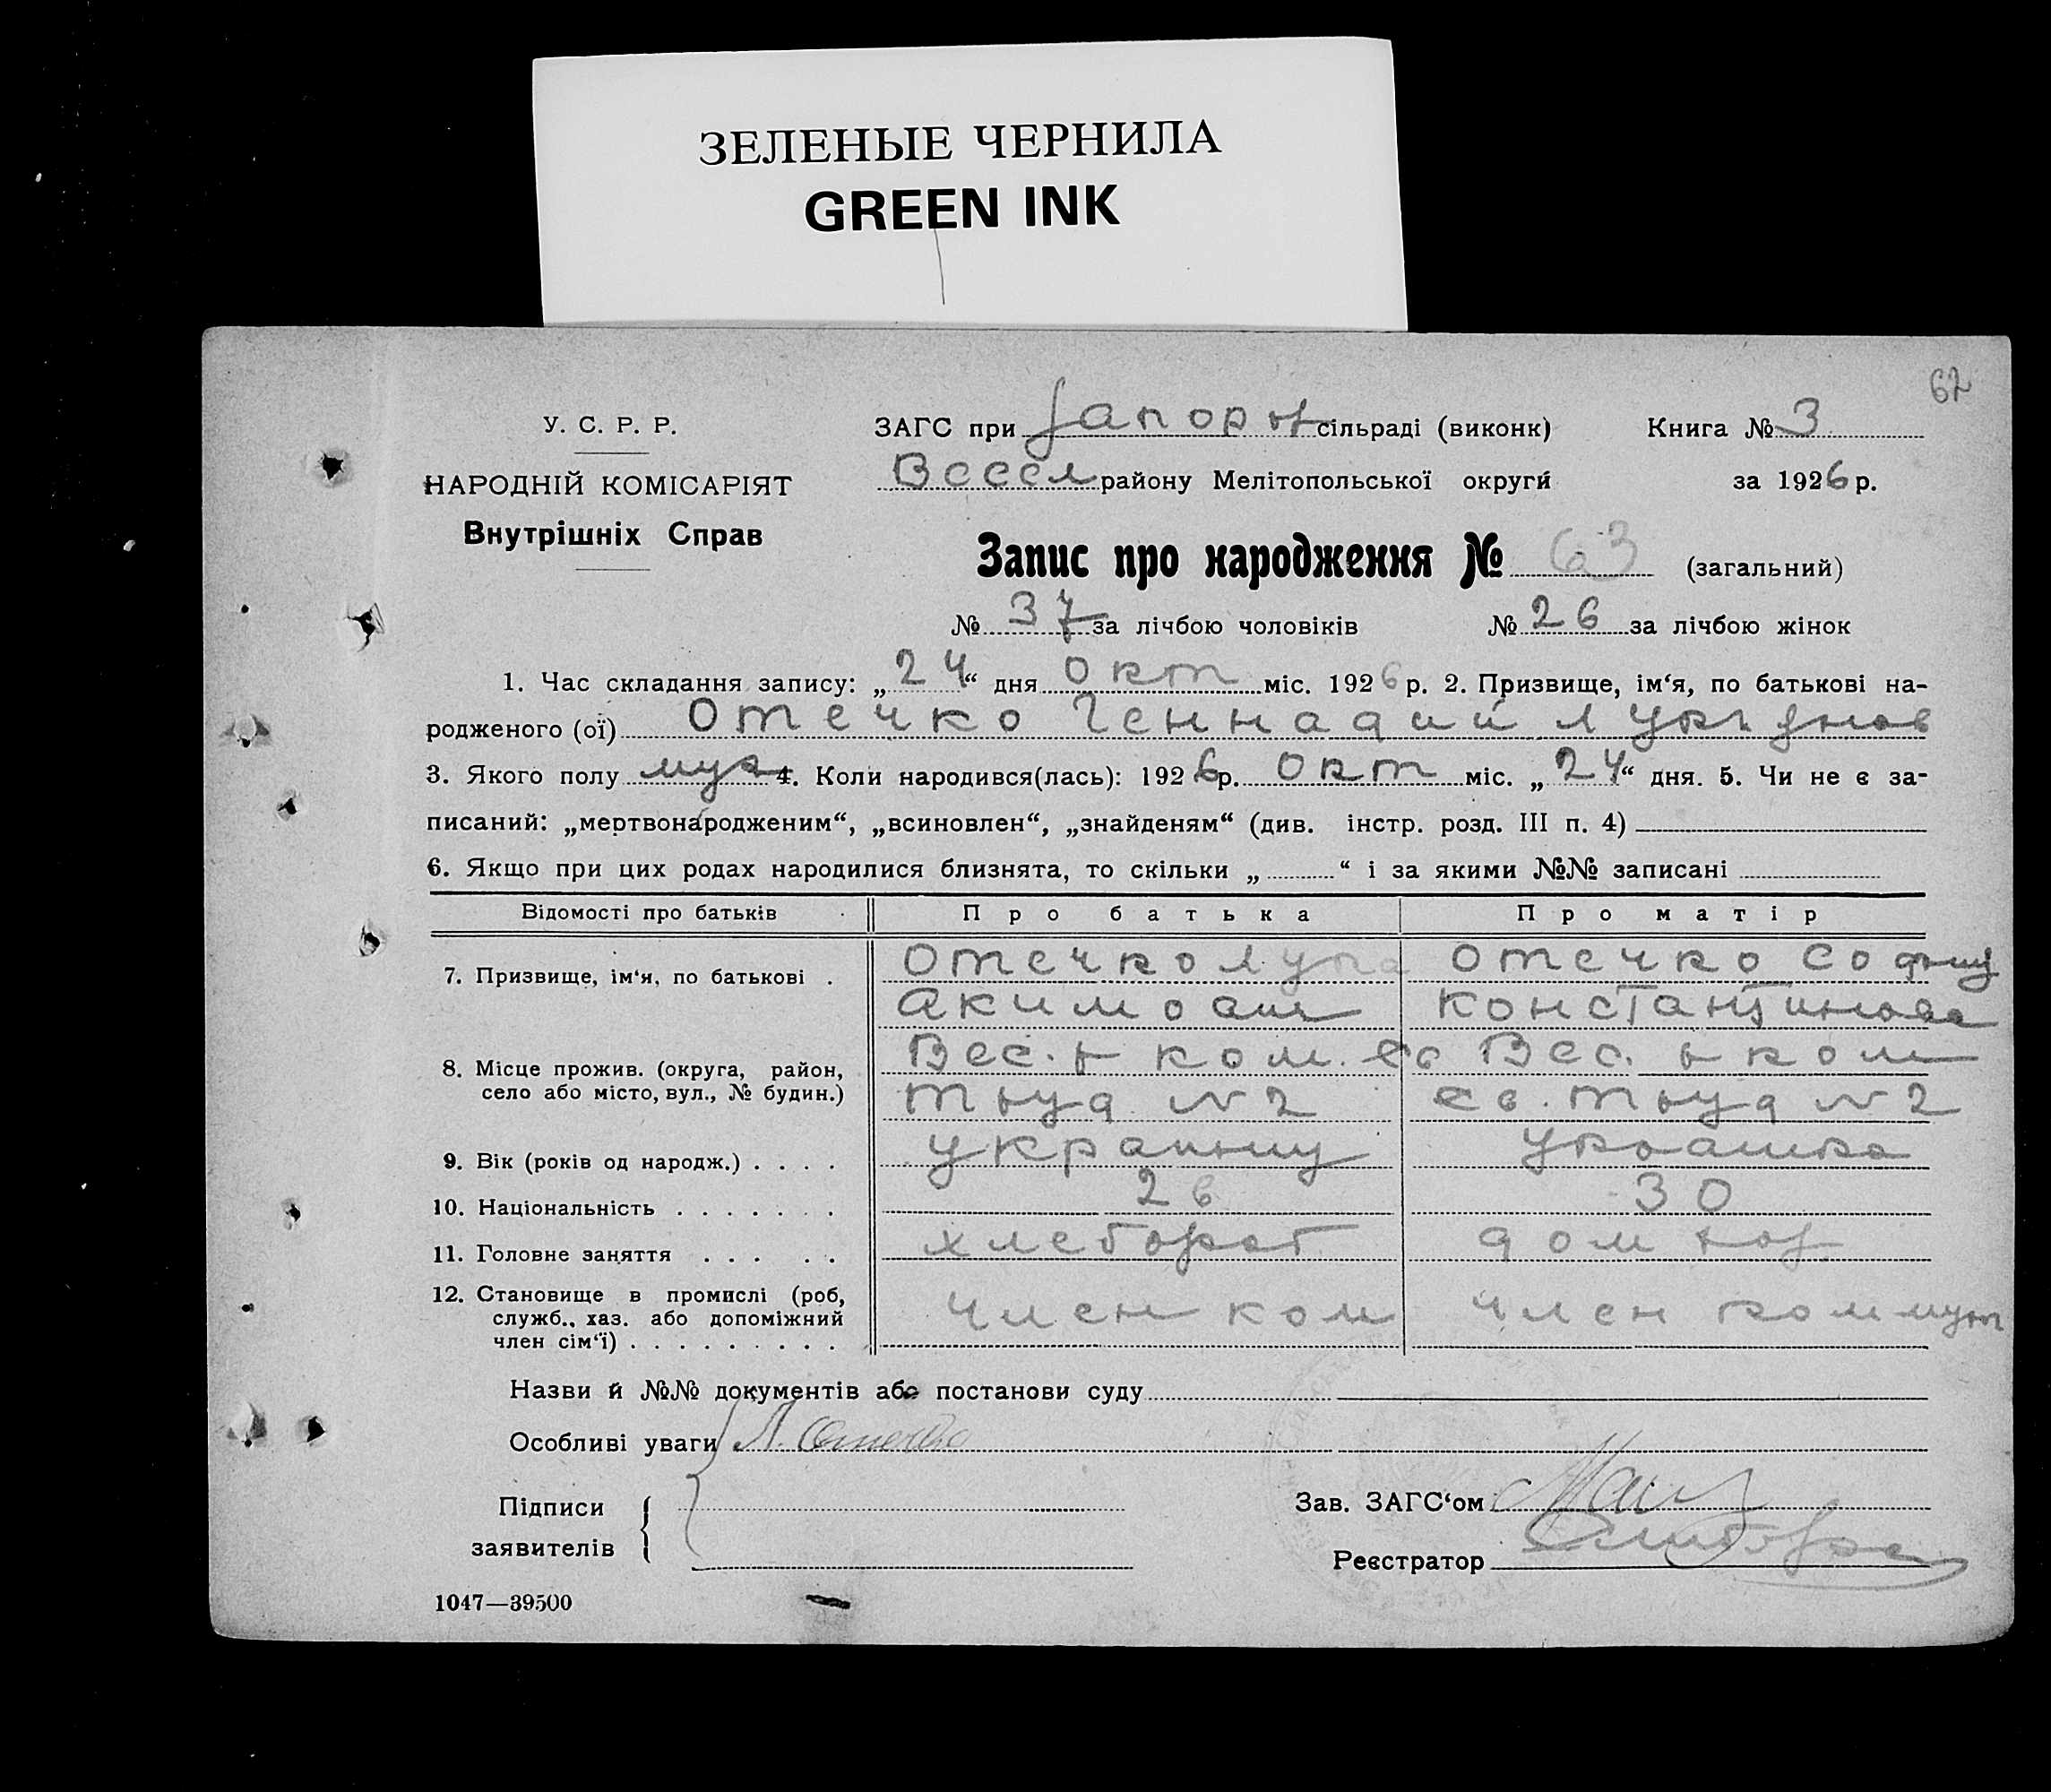 ЗЕЛЕНЫЕ ЧЕРНИЛА
GREEN INK
62
У. С. Р. Р.
НАРОДНІЙ КОМІСАРІЯТ
Внутрішніх Справ
ЗАГС при Запорож сільраді (виконк) Книга № 3
Весел району Мелітопольської округи за 1926 р.
Запис про народження № 63 (загальний)
№ 37 за лічбою чоловіків № 26 за лічбою жінок
1. Час складання запису: „24“ дня окт міс. 1926 р. 2. Призвище, ім‘я, по батькові на-
родженого (ої) Отечко Геннадий
3. Якого полу муж 4. Коли народився(лась): 1926 р. Окт міс. „24“ дня. 5. Чи не є за-
писаний: „мертвонародженим“, „всиновлен“, „знайденям“ (див. інстр. розд. III п. 4)
6. Якщо при цих родах народилися близнята, то скільки „ “ і за якими №№ записані
Відомості про батьків Про батька Про матір
7. Призвище, ім‘я, по батькові . Отечко Лука Отечко Софию
Акимович Константинова
8. Місце прожив. (округа, район, Вес. р ком. Св Вес. р ком
село або місто, вул., № будин.) Труд №2 Св. Труд №2
9. Вік (років од народж.) . . . . украинц украинка
10. Національність . . . . . . . 26 30
11. Головне заняття . . . . . хлебороб дом хоз
12. Становище в промислі (роб, член ком член коммун
служб., хаз. або допоміжний
член сім‘ї) . . . . . . . . .
Назви й №№ документів або постанови суду
Особливі уваги Л. Отечко
Підписи
заявителів
Зав. ЗАГС‘ом
Реєстратор
1047—39500